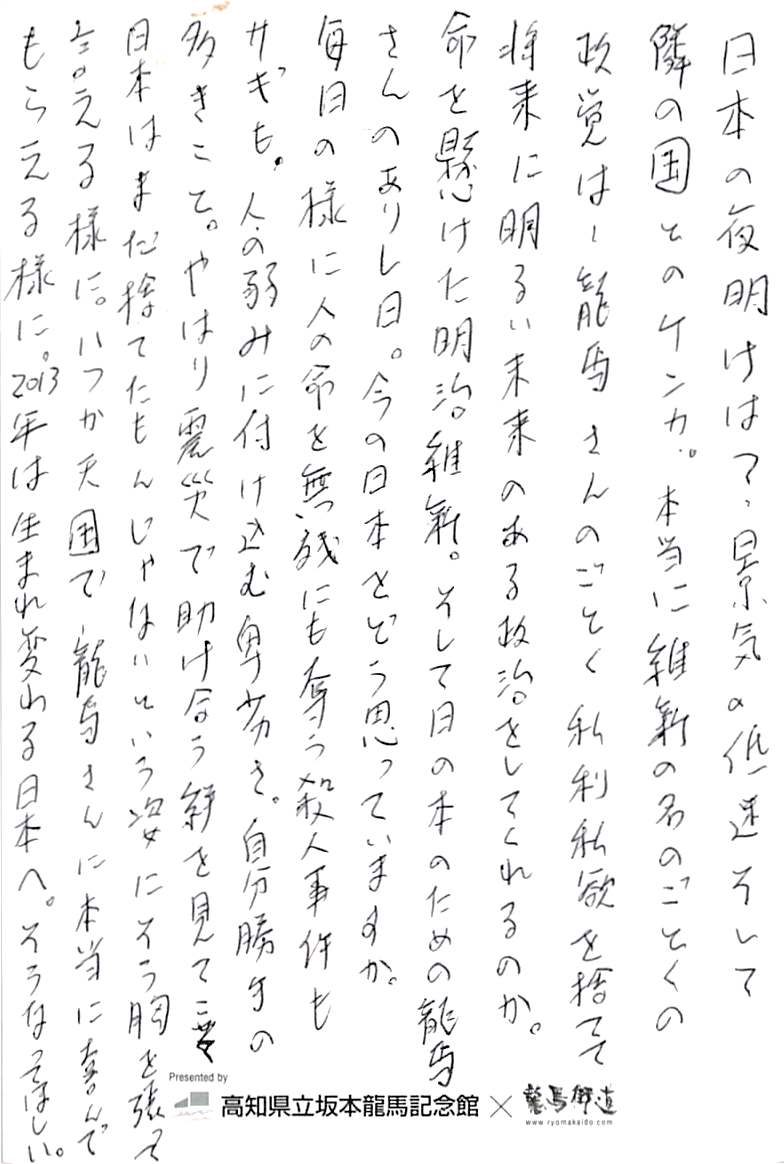 日本の夜明けは？、景気の低迷そして
隣の国とのケンカ。本当に維新の名のごとくの
政党は、龍馬さんのごとく私利私欲を捨てて
将来に明るい未来のある政治をしてくれるのか。
命を懸けた明治維新。そして日の本のための龍馬
さんのありし日。今の日本をどう思っていますか。
毎日の様に人の命を無残にも奪う殺人事件も
サギも。人の弱みに付け込む卑劣さ。自分勝手の
多きこと。やはり震災で助け合う絆を見て
日本はまだ捨てたもんじゃないという姿にそう胸を張って
言える様に。いつか天国で龍馬さんに本当に喜んで
もらえる様に。2013年は生まれ変わる日本へ。そうなってほしい。
Presented by
高知県立坂本龍馬記念館 × 龍馬街道
www.ryomakaido.com